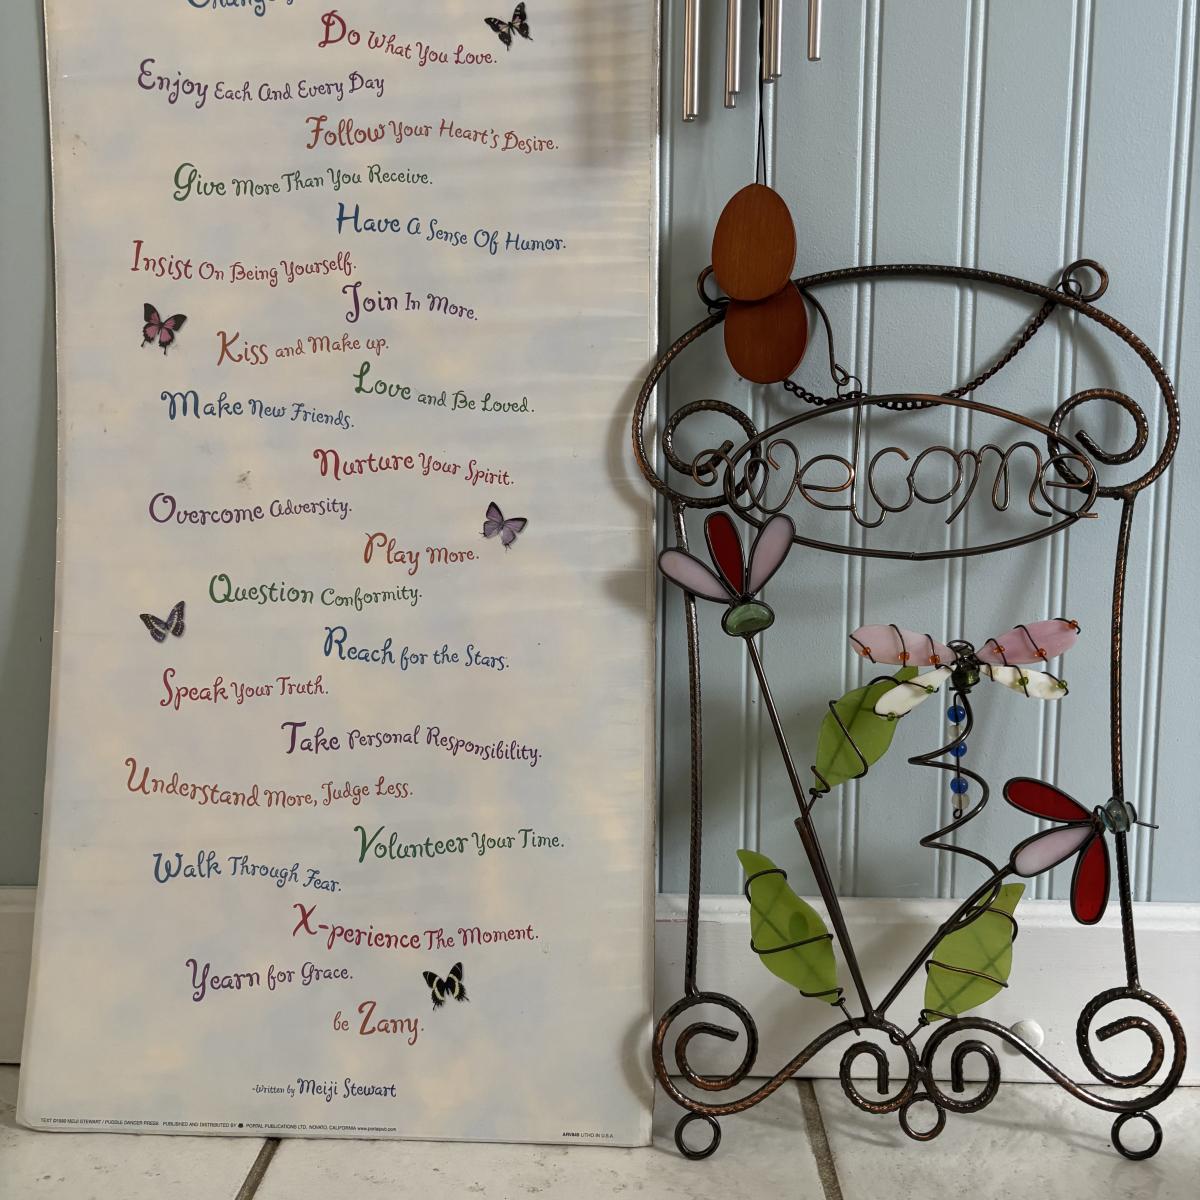 Do What You Love.
Enjoy Each And Every Day
Follow Your Heart's Desire.
Give More Than You Receive.
Have A Sense Of Humor.
Insist On Being Yourself.
Join In More.
Kiss and Make up.
Love and Be Loved.
Make New Friends.
Nurture Your Spirit.
Overcome Adversity.
Play More.
Question Conformity.
Reach for the Stars.
Speak Your Truth.
Take Personal Responsibility.
Understand More, Judge Less.
Volunteer Your Time.
Walk Through Fear.
X-perience The Moment.
Yearn for Grace.
be Zany.
-Written by Meiji Stewart
MEIJI STEWART / PUDDLE DANCER PRESS PUBLISHED AND DISTRIBUTED BY PORTAL PUBLICATIONS LTD. NOVATO, CALIFORNIA www.portalpub.com
LITHO IN U.S.A.
welcome